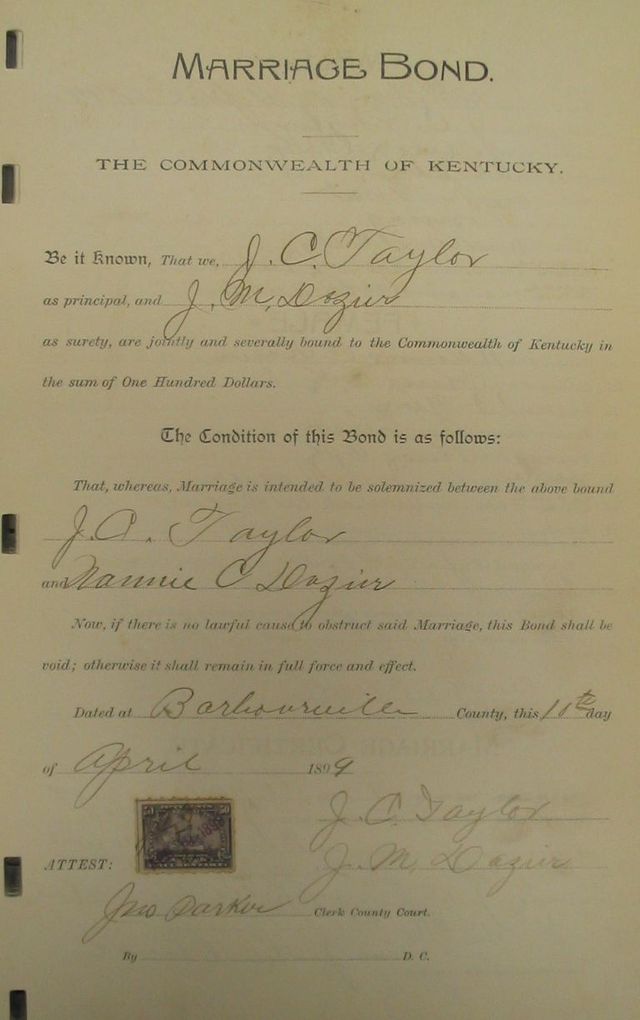 MARRIAGE BOND.
THE COMMONWEALTH OF KENTUCKY.
Be it Known, That we, J. C. Taylor
as principal, and J. M. Dozier
as surety, are jointly and severally bound to the Commonwealth of Kentucky in
the sum of One Hundred Dollars.
The Condition of this Bond is as follows:
That, whereas, Marriage is intended to be solemnized between the above bound
J. C. Taylor
and Nannie C Dozier
Now, if there is no lawful cause to obstruct said Marriage, this Bond shall be
void; otherwise it shall remain in full force and effect.
Dated at Barbourville County, this day
of April 1899
J. C. Taylor
ATTEST: J. M. Dozier
Jno Parker Clerk County Court.
By D. C.